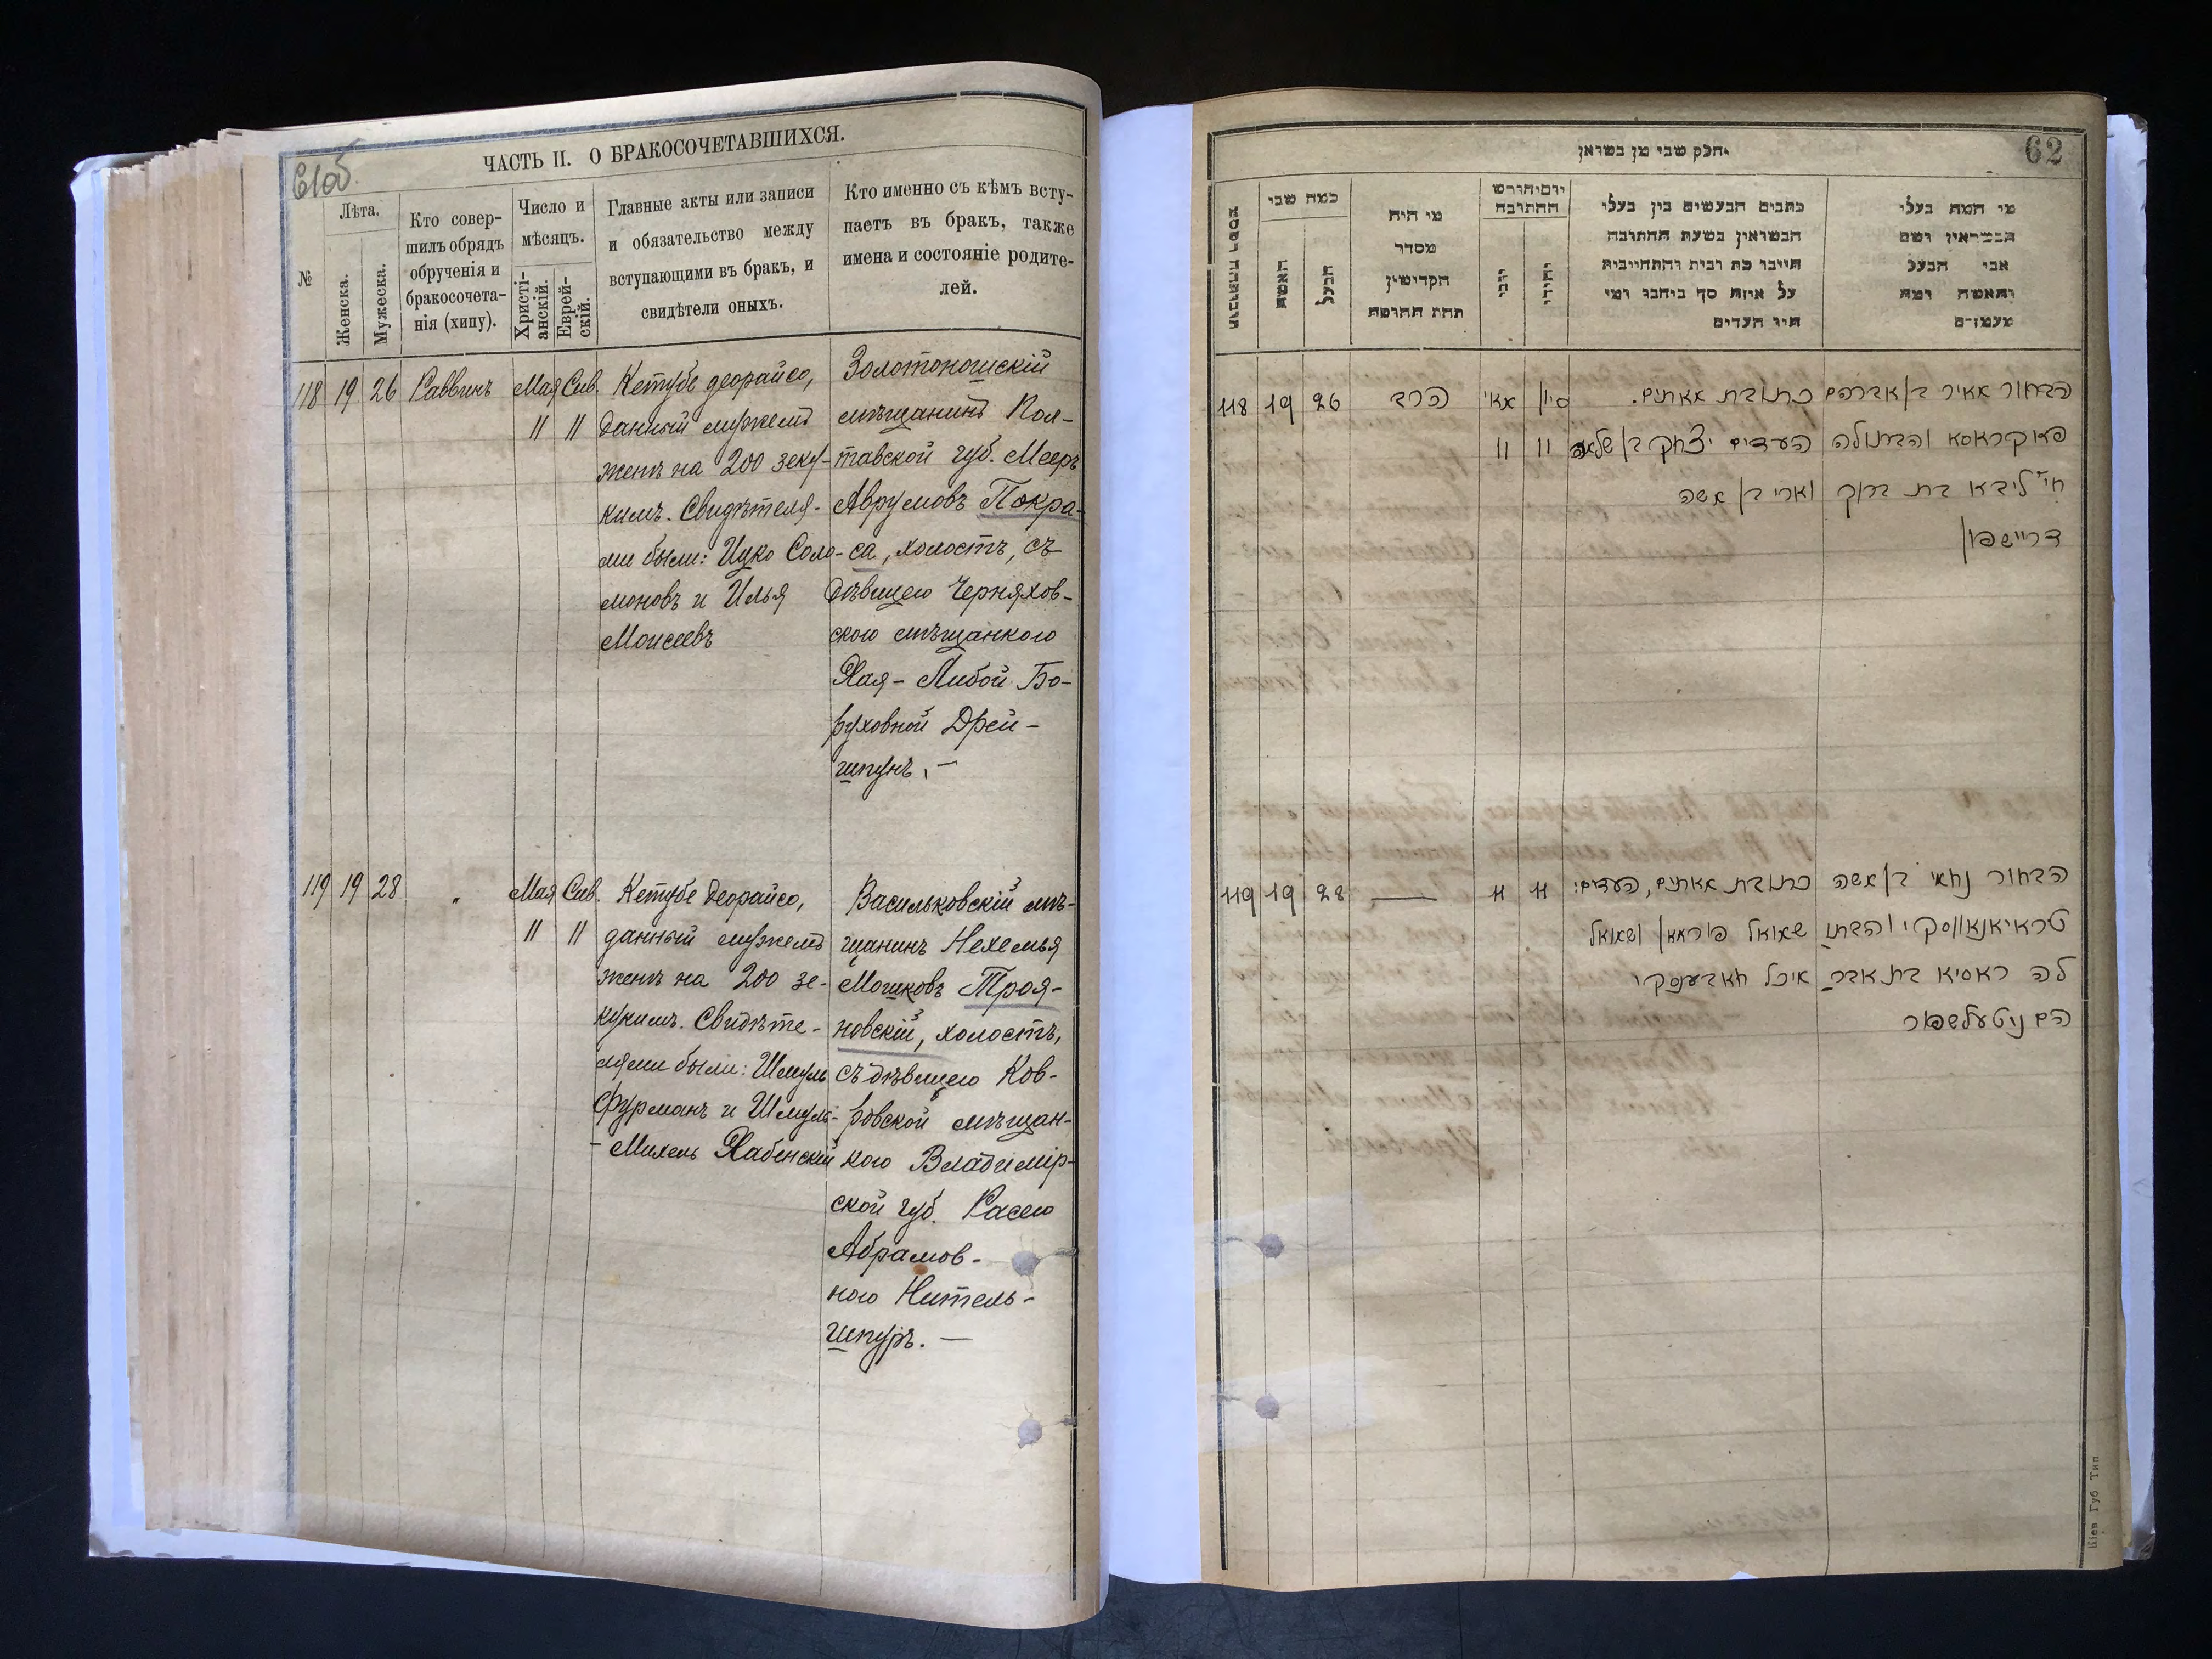 61об
ЧАСТЬ II. О БРАКОСОЧЕТАВШИХСЯ.
№
Лѣта.
Женска.
Мужеска.
Кто совер-
шилъ обрядъ
обрученія и
бракосочета-
нія (хипу).
Число и
мѣсяцъ.
Христі-
анскій.
Еврей-
скій.
Главные акты или записи
и обязательство между
вступающими въ бракъ, и
свидѣтели оныхъ.
Кто именно съ кѣмъ всту-
паетъ въ бракъ, также
имена и состояніе родите-
лей.
118 19 26 Раввинъ Мая Сив.
11 11
Кетубе деорайсо,
данный мужемъ
женѣ на 200 зеку-
кимъ. Свидѣтеля-
ми были: Ицко Соло-
моновъ и Илья
Моисеевъ
Золотоношскій
мѣщанинъ Пол-
тавской губ. Мееръ
Аврумовъ Покра-
са, холостъ, съ
дѣвицею Черняхов-
ского мѣщанкою
Хая-Либой Бо-
руховной Дрей-
шпунъ. —
119 19 28 " Мая Сив.
11 11
Кетубе деорайсо,
данный мужемъ
женѣ на 200 зе-
кукимъ. Свидѣте-
лями были: Шмуль
Фурманъ и Шмуль-
-Михель Хабенскій
Васильковскій мѣ-
щанинъ Нехемья
Мошковъ Троя-
новскій, холостъ,
съ дѣвицею Ков-
ровской мѣщан-
кою Владимір-
ской губ. Расею
Абрамов-
ною Нитель-
шпуръ. —
62
חלק שני מן נשואן
מי המה בעלי
אבי הבעל
והאשה ומה
מעמדם
כתבים הנעשים בין בעלי
הנשואין בשעת החתונה
על איזה סך ביחבו ומי
היו העדים
יום וחודש
החתונה
יהודי
מי היה
מסדר
הקדושין
תחת החופה
כמה שני
הבעל
האשה
הבחור מאיר בן אברהם
פאקראסא והבתולה
חי' ליבא בת ברוך
דריישפון
כתובת מאתים.
העדים יצחק בן שלמה
ואלי' בן משה
סיון
11
מאי
11
הרב
26
19
118
הבחור נחמי' בן משה
טראיאנאווסקי והבתו
לה ראסיא בת אבר
הם ניטעלשפור
כתובת מאתים, העדים:
שמואל פורמאן ושמואל
מיכל חאבענסקי
11
11
—
28
19
119
Кіев Губ Тип